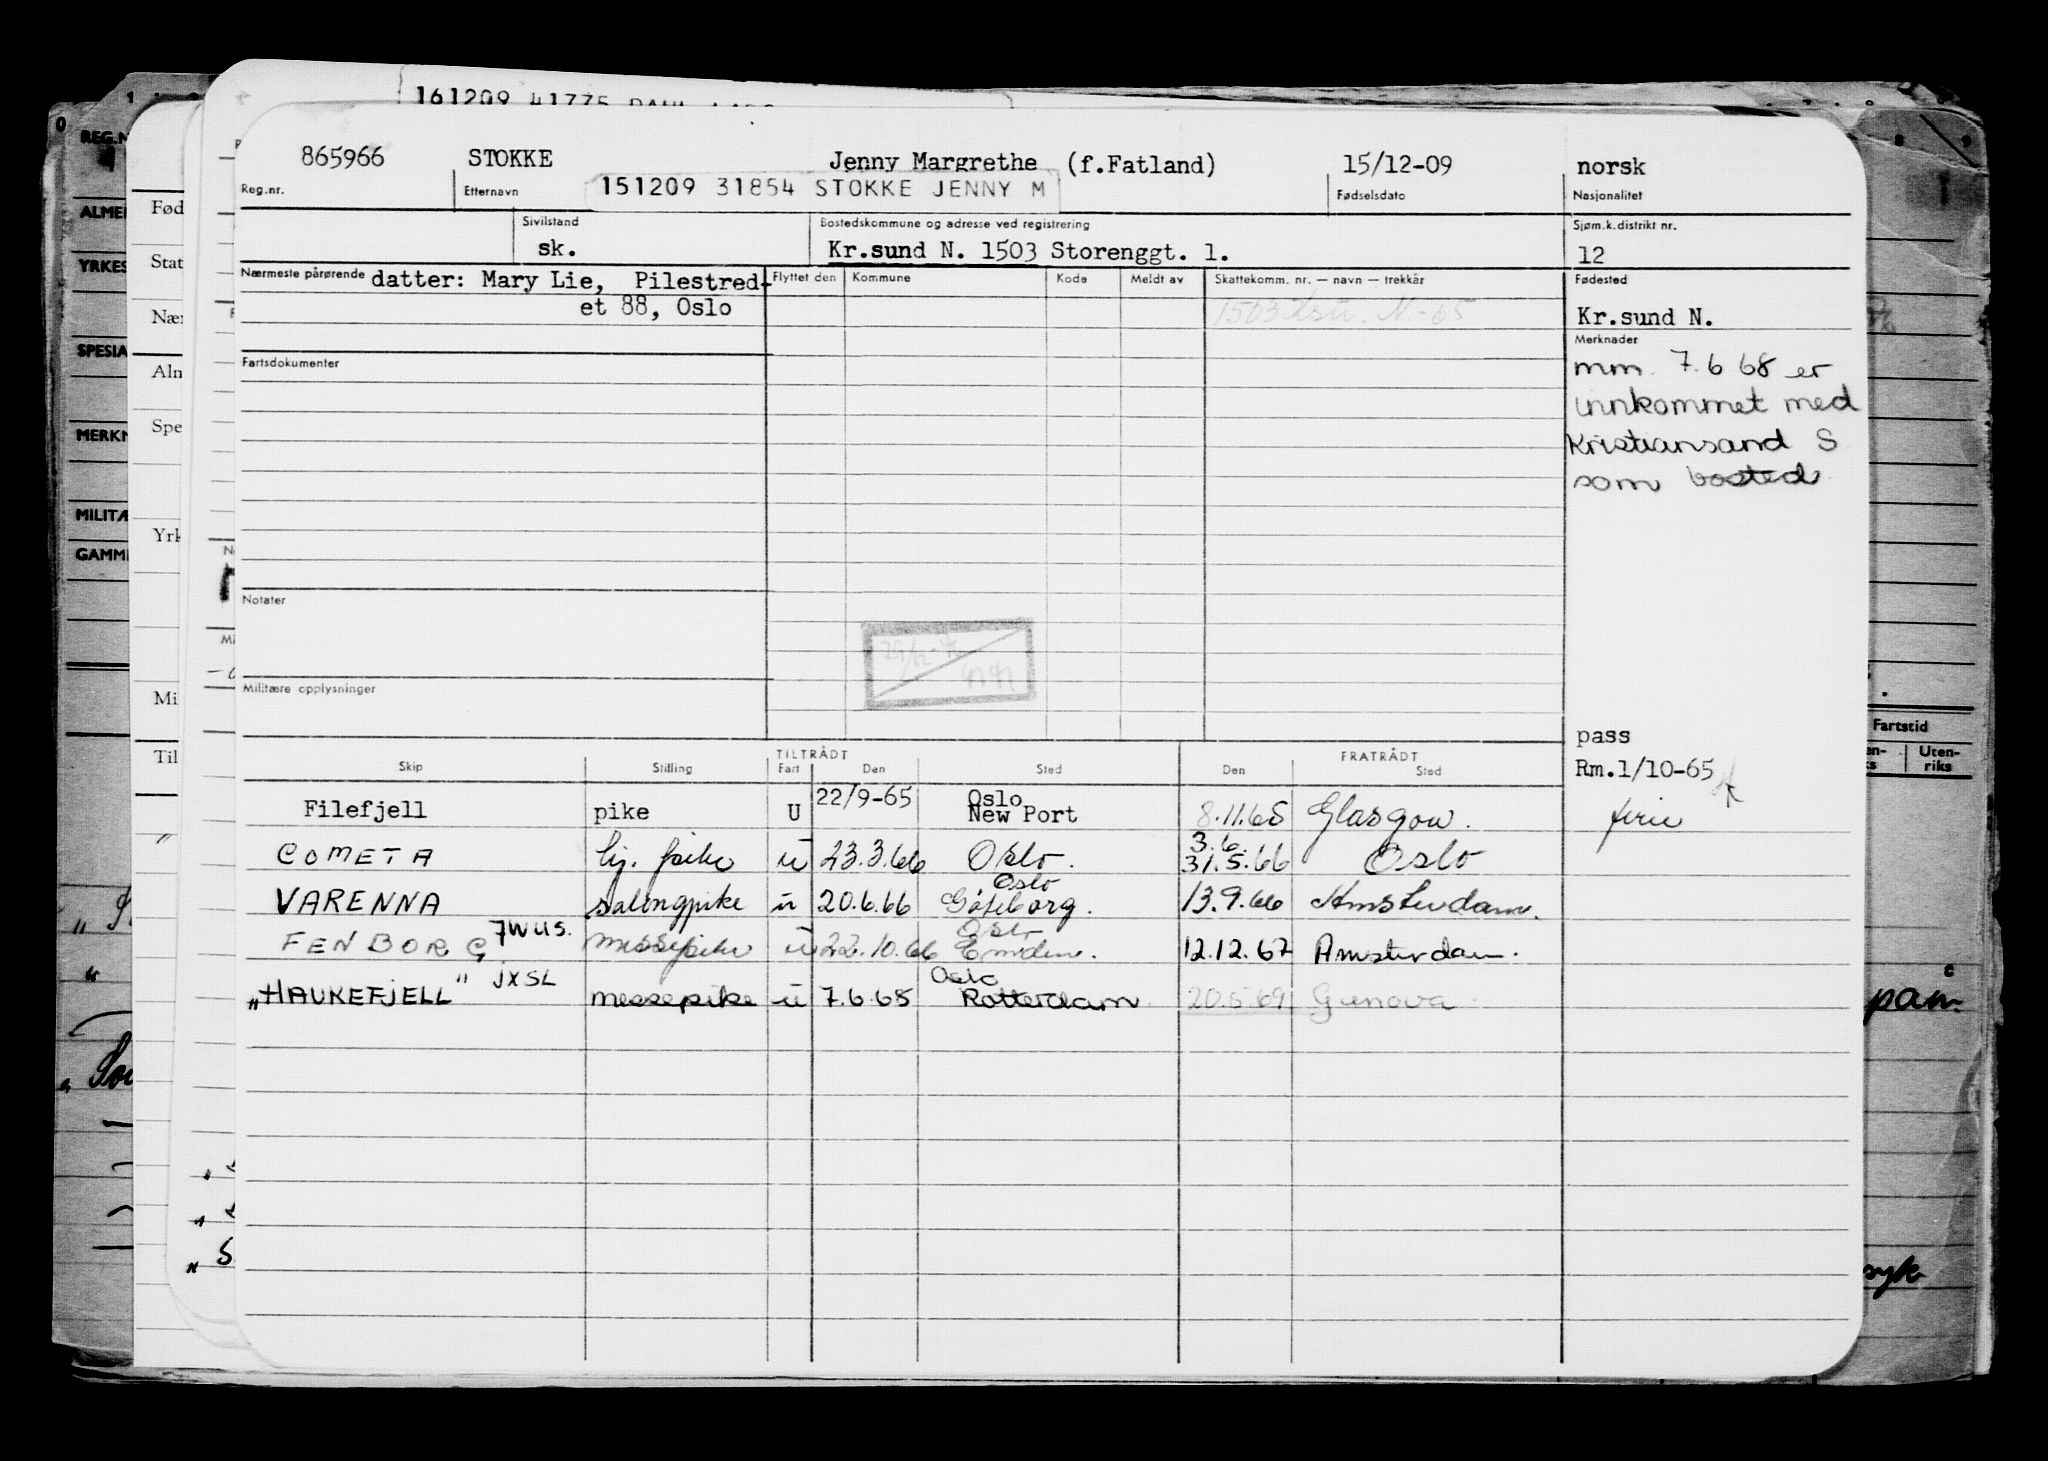 161209 41775 DAHL
865966 STOKKE Jenny Margrethe (f.Fatland) 15/12-09 norsk
Reg.nr. Etternavn 151209 31854 STOKKE JENNY M Fødselsdato Nasjonalitet
Sivilstand Bostedskommune og adresse ved registrering Sjøm.k.distrikt nr.
sk. Kr.sund N. 1503 Storenggt. 1. 12
Nærmeste pårørende datter: Mary Lie, Pilestred- Flyttet den Kommune Kode Meldt av Skattekomm. nr. — navn — trekkår Fødested
et 88, Oslo 1503 N.-65 Kr.sund N.
Merknader
Fartsdokumenter mm. 7.6 68 er
innkommet med
Kristiansand S
som bosted
Notater
Militære opplysninger
pass
TILTRÅDT FRATRÅDT
Skip Stilling Fart Den Sted Den Sted Rm.1/10-65
22/9-65 Oslo
Filefjell pike U New Port 8.11.65 Glasgow. ferie
3.6.
COMETA hj. pike u 23.3.66 Oslo. 31.5.66 Oslo
Oslo
VARENNA salongpike u 20.6.66 Göteborg. 13.9.66 Amsterdam.
JWUS. Oslo
FENBORG messepike u 22.10.66 Emden. 12.12.67 Amsterdam.
JXSL Oslo
"HAUKEFJELL" messepike u 7.6.68 Rotterdam. 20.5.69 Genova
0
REG.N
ALMEN
YRKES
SPESIA
MERKN
MILITÆ
GAMM
Fød
Stat
Nær
Aln
Spe
Yrk
Mi
Til
Fartstid
Uten-
riks
pam.
syk